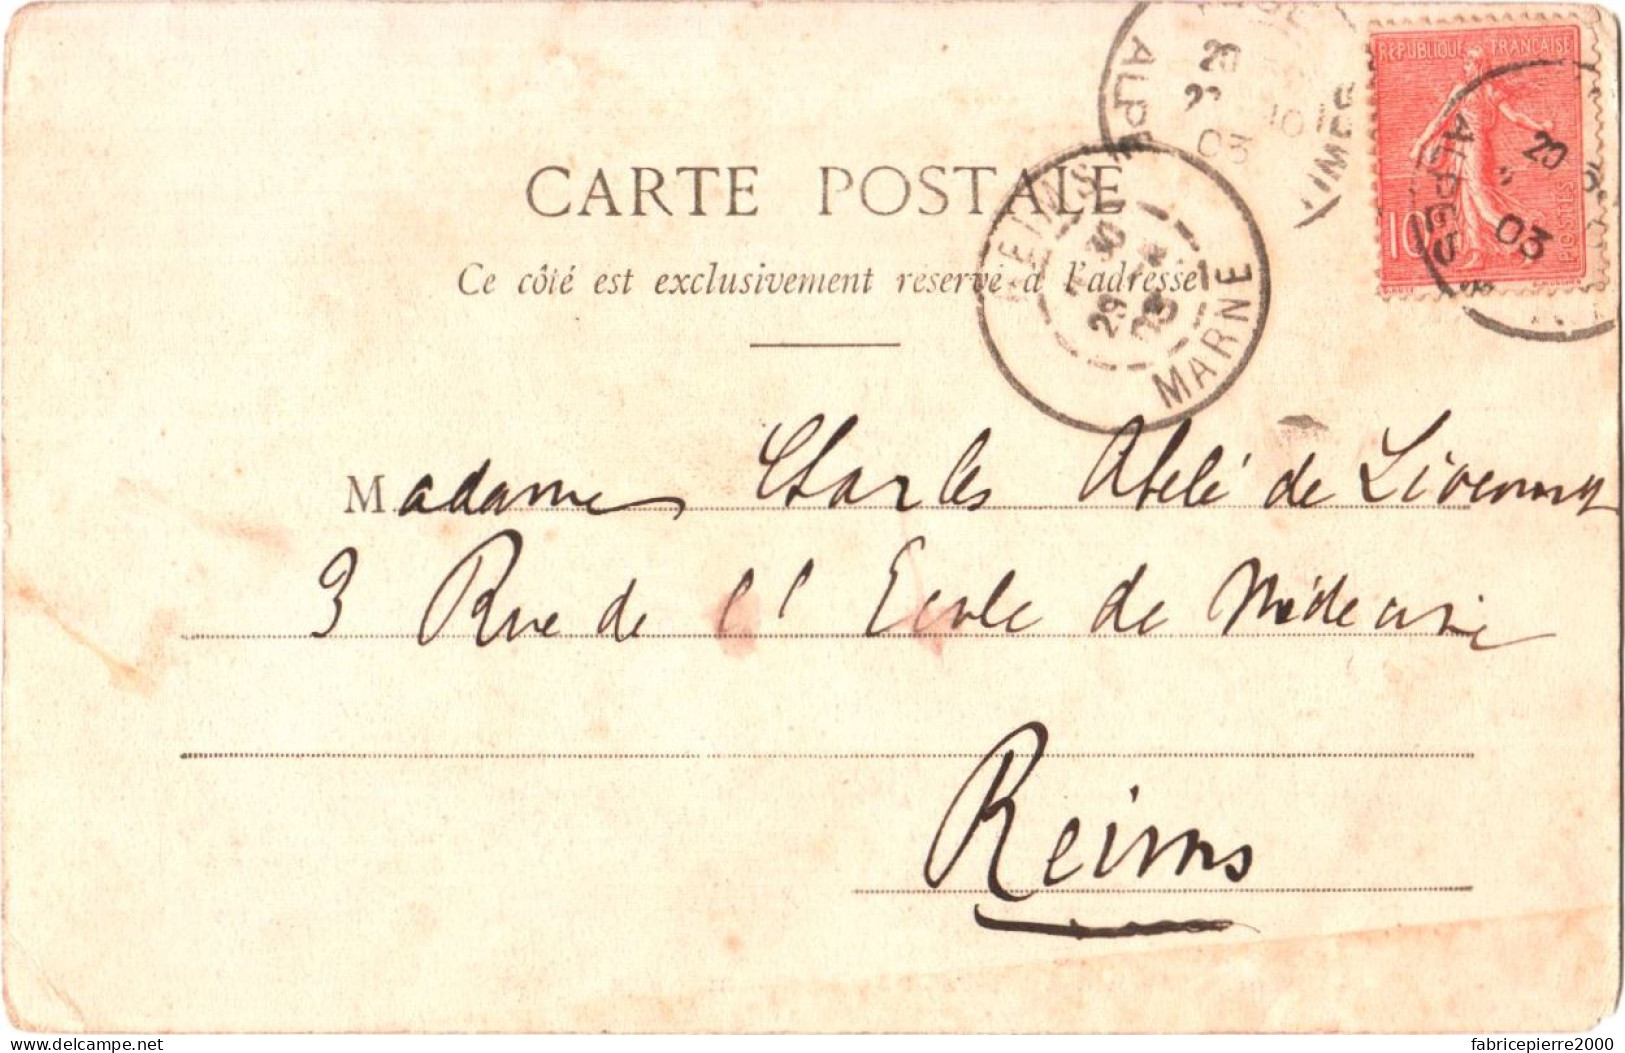 REPUBLIQUE FRANÇAISE
10
POSTES
ALPES
20
03
ALPES
20
03
CARTE POSTALE
REIMS
MARNE
30
29
03
Ce côté est exclusivement réservé à l'adresse
Madame Charles Abelé de
3 Rue de l'Ecole de Médecine
Reims
delcampe.net
fabricepierre2000